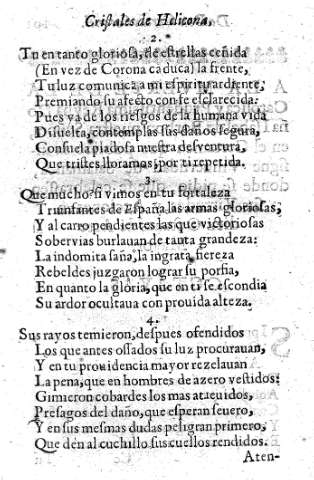 Cristales de Helicona,
2.
Tu en tanto gloriosa, de estrellas ceñida
(En vez de Corona caduca) la frente,
Tu luz comunica a mi espiritu ardiente,
Premiando su afecto con fe esclarecida.
Pues ya de los riesgos de la humana vida
Disuelta, contemplas sus daños segura,
Consuela piadosa nuestra desventura,
Que tristes lloramos, por ti repetida.
3.
Que mucho si vimos en tu fortaleza
Triunfantes de España las armas gloriosas,
Y al carro pendientes las que victoriosas
Sobervias burlauan de tanta grandeza:
La indomita saña, la ingrata fiereza
Rebeldes juzgaron lograr su porfia,
En quanto la gloria, que en ti se escondia
Su ardor ocultaua con prouida alteza.
4.
Sus rayos temieron, despues ofendidos
Los que antes ossados su luz procurauan,
Y en tu prouidencia mayor rezelauan
La pena, que en hombres de azero vestidos:
Gimieron cobardes los mas atreuidos,
Presagos del daño, que esperan seuero,
Y en sus mesmas dudas peligran primero,
Que dèn al cuchillo sus cuellos rendidos.
Aten-